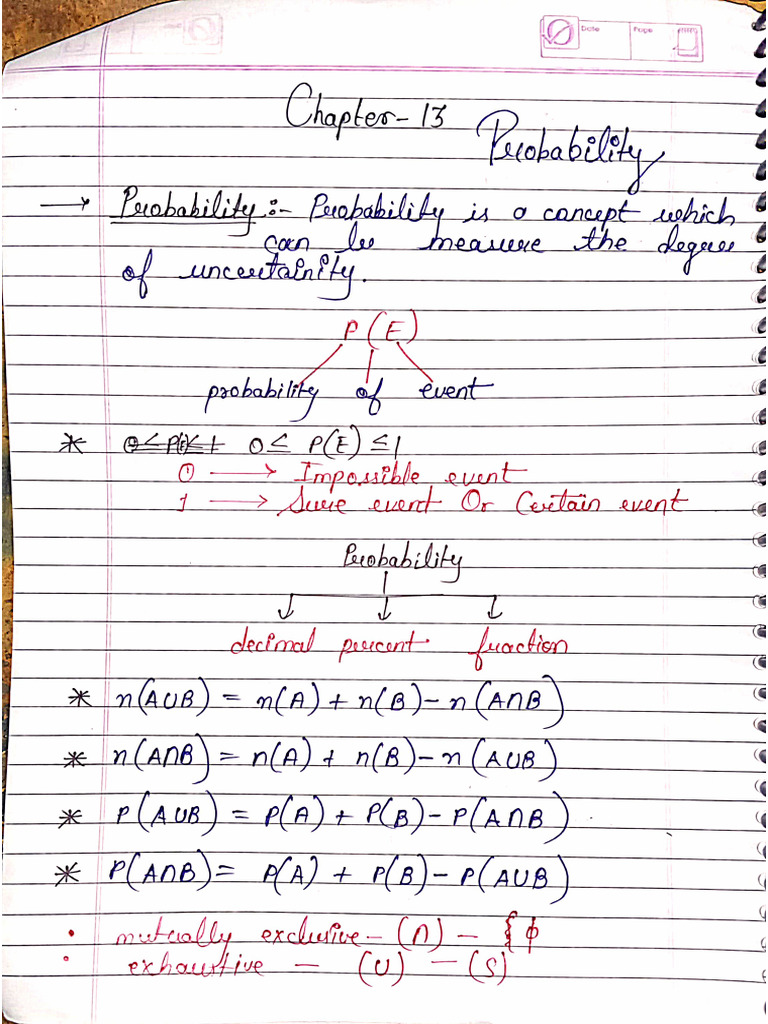 Date
Page
Chapter-13
Probability
→ Probability :- Probability is a concept which
can be measure the degree
of uncertainity.
P(E)
probability of event
* 0≤P(E)≤1 0≤ P(E) ≤1
0 → Impossible event
1 → Sure event Or Certain event
Probability
decimal percent fraction
* n(A∪B) = n(A) + n(B) - n(A∩B)
* n(A∩B) = n(A) + n(B) - n(A∪B)
* P(A∪B) = P(A) + P(B) - P(A∩B)
* P(A∩B) = P(A) + P(B) - P(A∪B)
• mutually exclusive - (∩) - {ϕ
• exhaustive - (∪) - (S)